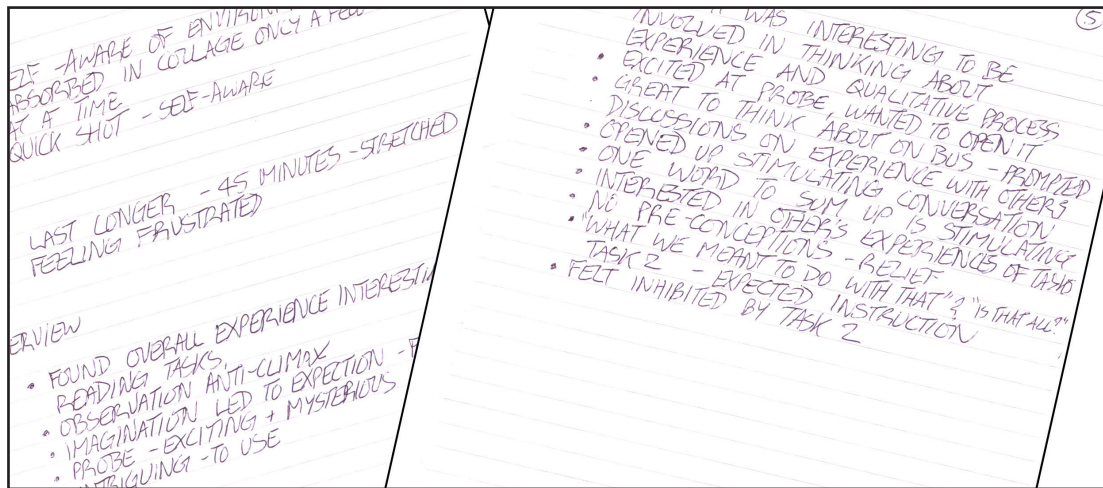 SELF - AWARE OF
ABSORBED IN COLLAGE ONLY A FEW
AT A TIME
QUICK SHOT - SELF-AWARE
LAST LONGER - 45 MINUTES - STRETCHED
FEELING FRUSTRATED
• FOUND OVERALL EXPERIENCE
READING TASKS.
• OBSERVATION ANTI-CLIMAX
• IMAGINATION LED TO EXPECTION -
• PROBE - EXCITING + MYSTERIOUS
INTRIGUING - TO USE
5
IT WAS INTERESTING TO BE
INVOLVED IN THINKING ABOUT
EXPERIENCE AND QUALITATIVE PROCESS
• EXCITED AT PROBE, WANTED TO OPEN IT
• GREAT TO THINK ABOUT ON BUS - PROMPTED
DISCUSSIONS ON EXPERIENCE WITH OTHERS
• OPENED UP STIMULATING CONVERSATION
• ONE WORD TO SUM UP IS STIMULATING
• INTERESTED IN OTHER'S EXPERIENCES OF TASKS
• NO PRE-CONCEPTIONS - RELIEF
• "WHAT WE MEANT TO DO WITH THAT"? "IS THAT ALL?"
TASK 2 - EXPECTED INSTRUCTION
• FELT INHIBITED BY TASK 2